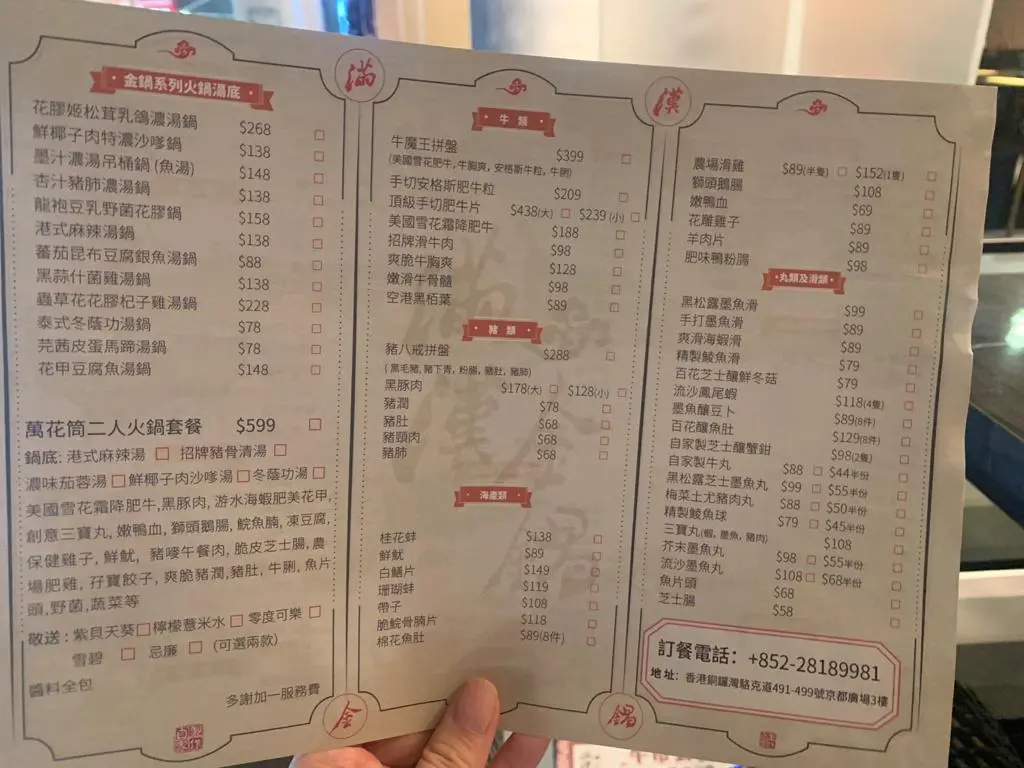 滿
漢
金鍋系列火鍋湯底
花膠姬松茸乳鴿濃湯鍋 $268 □
鮮椰子肉特濃沙嗲鍋 $138 □
墨汁濃湯吊桶鍋(魚湯) $148 □
杏汁豬肺濃湯鍋 $138 □
龍袍豆乳野菌花膠鍋 $158 □
港式麻辣湯鍋 $138 □
蕃茄昆布豆腐銀魚湯鍋 $88 □
黑蒜什菌雞湯鍋 $138 □
蟲草花花膠杞子雞湯鍋 $228 □
泰式冬蔭功湯鍋 $78 □
芫茜皮蛋馬蹄湯鍋 $78 □
花甲豆腐魚湯鍋 $148 □
萬花筒二人火鍋套餐 $599 □
鍋底: 港式麻辣湯 □ 招牌豬骨清湯 □
濃味茄蓉湯 □ 鮮椰子肉沙嗲湯 □ 冬蔭功湯 □
美國雪花霜降肥牛, 黑豚肉, 游水海蝦肥美花甲,
創意三寶丸, 嫩鴨血, 獅頭鵝腸, 鯇魚腩, 凍豆腐,
保健雞子, 鮮魷, 豬嘜午餐肉, 脆皮芝士腸, 農
場肥雞, 孖寶餃子, 爽脆豬潤, 豬肚, 牛脷, 魚片
頭, 野菌, 蔬菜等
敬送: 紫貝天葵 □ 檸檬薏米水 □ 零度可樂 □
雪碧 □ 忌廉 □ (可選兩款)
醬料全包
多謝加一服務費
牛類
牛魔王拼盤 $399 □
(美國雪花肥牛, 牛胸爽, 安格斯牛粒, 牛脷)
手切安格斯肥牛粒 $209 □
頂級手切肥牛片 $438(大) □ $239(小) □
美國雪花霜降肥牛 $188 □
招牌滑牛肉 $98 □
爽脆牛胸爽 $128 □
嫩滑牛骨髓 $98 □
空港黑栢葉 $89 □
豬類
豬八戒拼盤 $288 □
(黑毛豬, 豬下青, 粉腸, 豬肚, 豬肺)
黑豚肉 $178(大) □ $128(小) □
豬潤 $78 □
豬肚 $68 □
豬頸肉 $68 □
豬肺 $68 □
海產類
桂花蚌 $138 □
鮮魷 $89 □
白鱔片 $149 □
珊瑚蚌 $119 □
帶子 $108 □
脆鯇骨腩片 $118 □
棉花魚肚 $89(8件) □
農場滑雞 $89(半隻) □ $152(1隻) □
獅頭鵝腸 $108 □
嫩鴨血 $69 □
花雕雞子 $89 □
羊肉片 $89 □
肥味鴨粉腸 $98 □
丸類及滑類
黑松露墨魚滑 $99 □
手打墨魚滑 $89 □
爽滑海蝦滑 $89 □
精製鯪魚滑 $79 □
百花芝士釀鮮冬菇 $79 □
流沙鳳尾蝦 $118(4隻) □
墨魚釀豆卜 $89(8件) □
百花釀魚肚 $129(8件) □
自家製芝士釀蟹鉗 $98(2隻) □
自家製牛丸 $88 □ $44半份 □
黑松露芝士墨魚丸 $99 □ $55半份 □
梅菜土尤豬肉丸 $88 □ $50半份 □
精製鯪魚球 $79 □ $45半份 □
三寶丸(蝦, 墨魚, 豬肉) $108 □
芥末墨魚丸 $98 □ $55半份 □
流沙墨魚丸 $108 □ $68半份 □
魚片頭 $68 □
芝士腸 $58 □
訂餐電話: +852-28189981
地址: 香港銅鑼灣駱克道491-499號京都廣場3樓
金
鍋